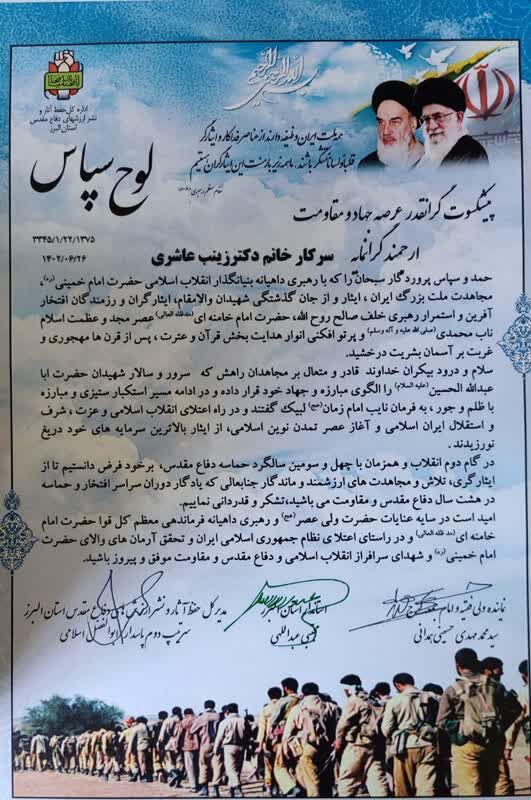 بسم الله الرحمن الرحیم
اداره کل حفظ آثار و
نشر ارزشهای دفاع مقدس
استان البرز
همه ملت ایران وظیفه دارند از عناصر فداکار و ایثارگر
قلباً و لساناً متشکر باشند. ما همه زیر بار منت این ایثارگران هستیم
مقام معظم رهبری
لوح سپاس
پیشکسوت گرانقدر عرصه جهاد و مقاومت
۳۳۴۵/۱/۲۲/۱۳۷۵
۱۴۰۲/۰۶/۲۶
ارجمند گرانمایه سرکار خانم دکتر زینب عاشری
حمد و سپاس پروردگار سبحان را که با رهبری داهیانه بنیانگذار انقلاب اسلامی حضرت امام خمینی (ره)،
مجاهدت ملت بزرگ ایران ، ایثار و از جان گذشتگی شهیدان والامقام، ایثارگران و رزمندگان افتخار
آفرین و استمرار رهبری خلف صالح روح الله، حضرت امام خامنه ای (مدظله العالی) عصر مجد و عظمت اسلام
ناب محمدی (صلی الله علیه و آله وسلم) و پرتو افکنی انوار هدایت بخش قرآن و عترت ، پس از قرن ها مهجوری و
غربت بر آسمان بشریت درخشید.
سلام و درود بیکران خداوند قادر و متعال بر مجاهدان راهش که سرور و سالار شهیدان حضرت ابا
عبدالله الحسین (علیه السلام) را الگوی مبارزه و جهاد خود قرار داده و در ادامه مسیر استکبار ستیزی و مبارزه
با ظلم و جور ، به فرمان نایب امام زمان (عج) لبیک گفتند و در راه اعتلای انقلاب اسلامی و عزت ، شرف
و استقلال ایران اسلامی و آغاز عصر تمدن نوین اسلامی، از ایثار بالاترین سرمایه های خود دریغ
نورزیدند .
در گام دوم انقلاب و همزمان با چهل و سومین سالگرد حماسه دفاع مقدس، برخود فرض دانستیم تا از
ایثارگری، تلاش و مجاهدت های ارزشمند و ماندگار جنابعالی که یادگار دوران سراسر افتخار و حماسه
در هشت سال دفاع مقدس و مقاومت می باشید،تشکر و قدردانی نماییم.
امید است در سایه عنایات حضرت ولی عصر (عج) و رهبری داهیانه فرماندهی معظم کل قوا حضرت امام
خامنه ای (مد ظله العالی) و در راستای اعتلای نظام جمهوری اسلامی ایران و تحقق آرمان های والای حضرت
امام خمینی (ره) و شهدای سرافراز انقلاب اسلامی و دفاع مقدس و مقاومت موفق و پیروز باشید.
نماینده ولی فقیه و امام جمعه
سید محمد مهدی حسینی همدانی
استاندار استان البرز
مجتبی عبداللهی
مدیر کل حفظ آثار و نشر ارزش های دفاع مقدس استان البرز
سرتیپ دوم پاسدار ابوالفضل اسلامی